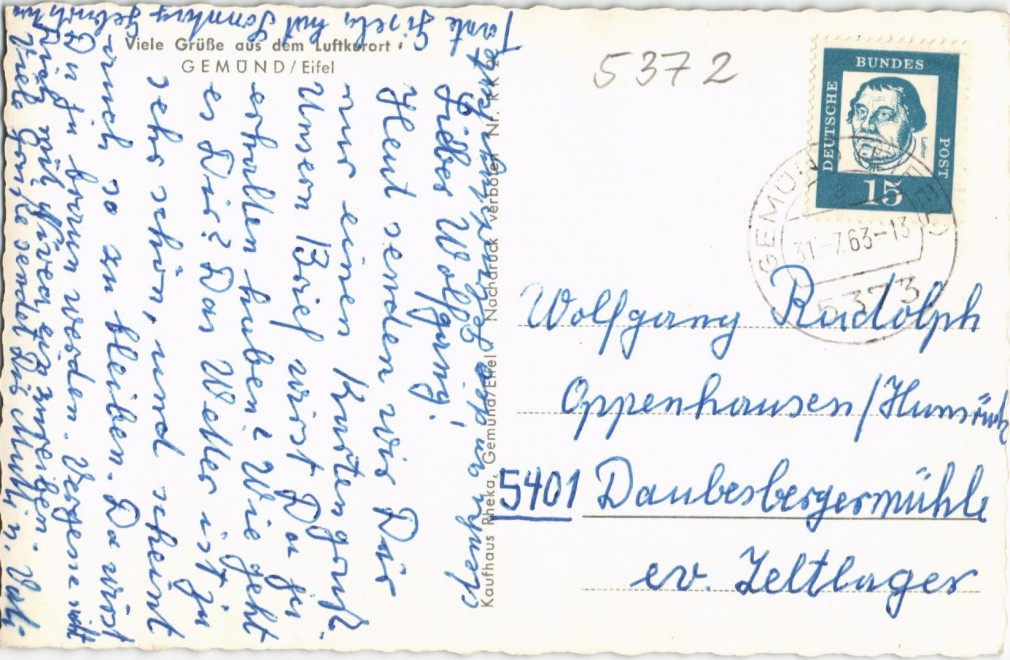 Viele Grüße aus dem Luftkurort
GEMÜND/Eifel
5372
DEUTSCHE
BUNDES
POST
Luther
15
GEMÜND
EIFEL
31.-7.63-13
5373
Wolfgang Rudolph
Oppenhausen/Hunsrück
5401 Daubesbergermühle
ev. Zeltlager
Kaufhaus Rheka, Gemünd/Eifel Nachdruck verboten Nr. RK
Lieber Wolfgang!
Heut senden wir Dir
nur einen Kartengruß.
Unsern Brief wirst Du ja
erhalten haben? Wie geht
es Dir? Das Wetter ist ja
sehr schön, und scheint
auch so zu bleiben. Da wirst
Du ja braun werden. Vergesse nicht
Dich mit Nivea einzureiben.
Viele Grüße sendet Dir Mutti u. Vati
Tante Gisela hat Sonntag Geburtstag